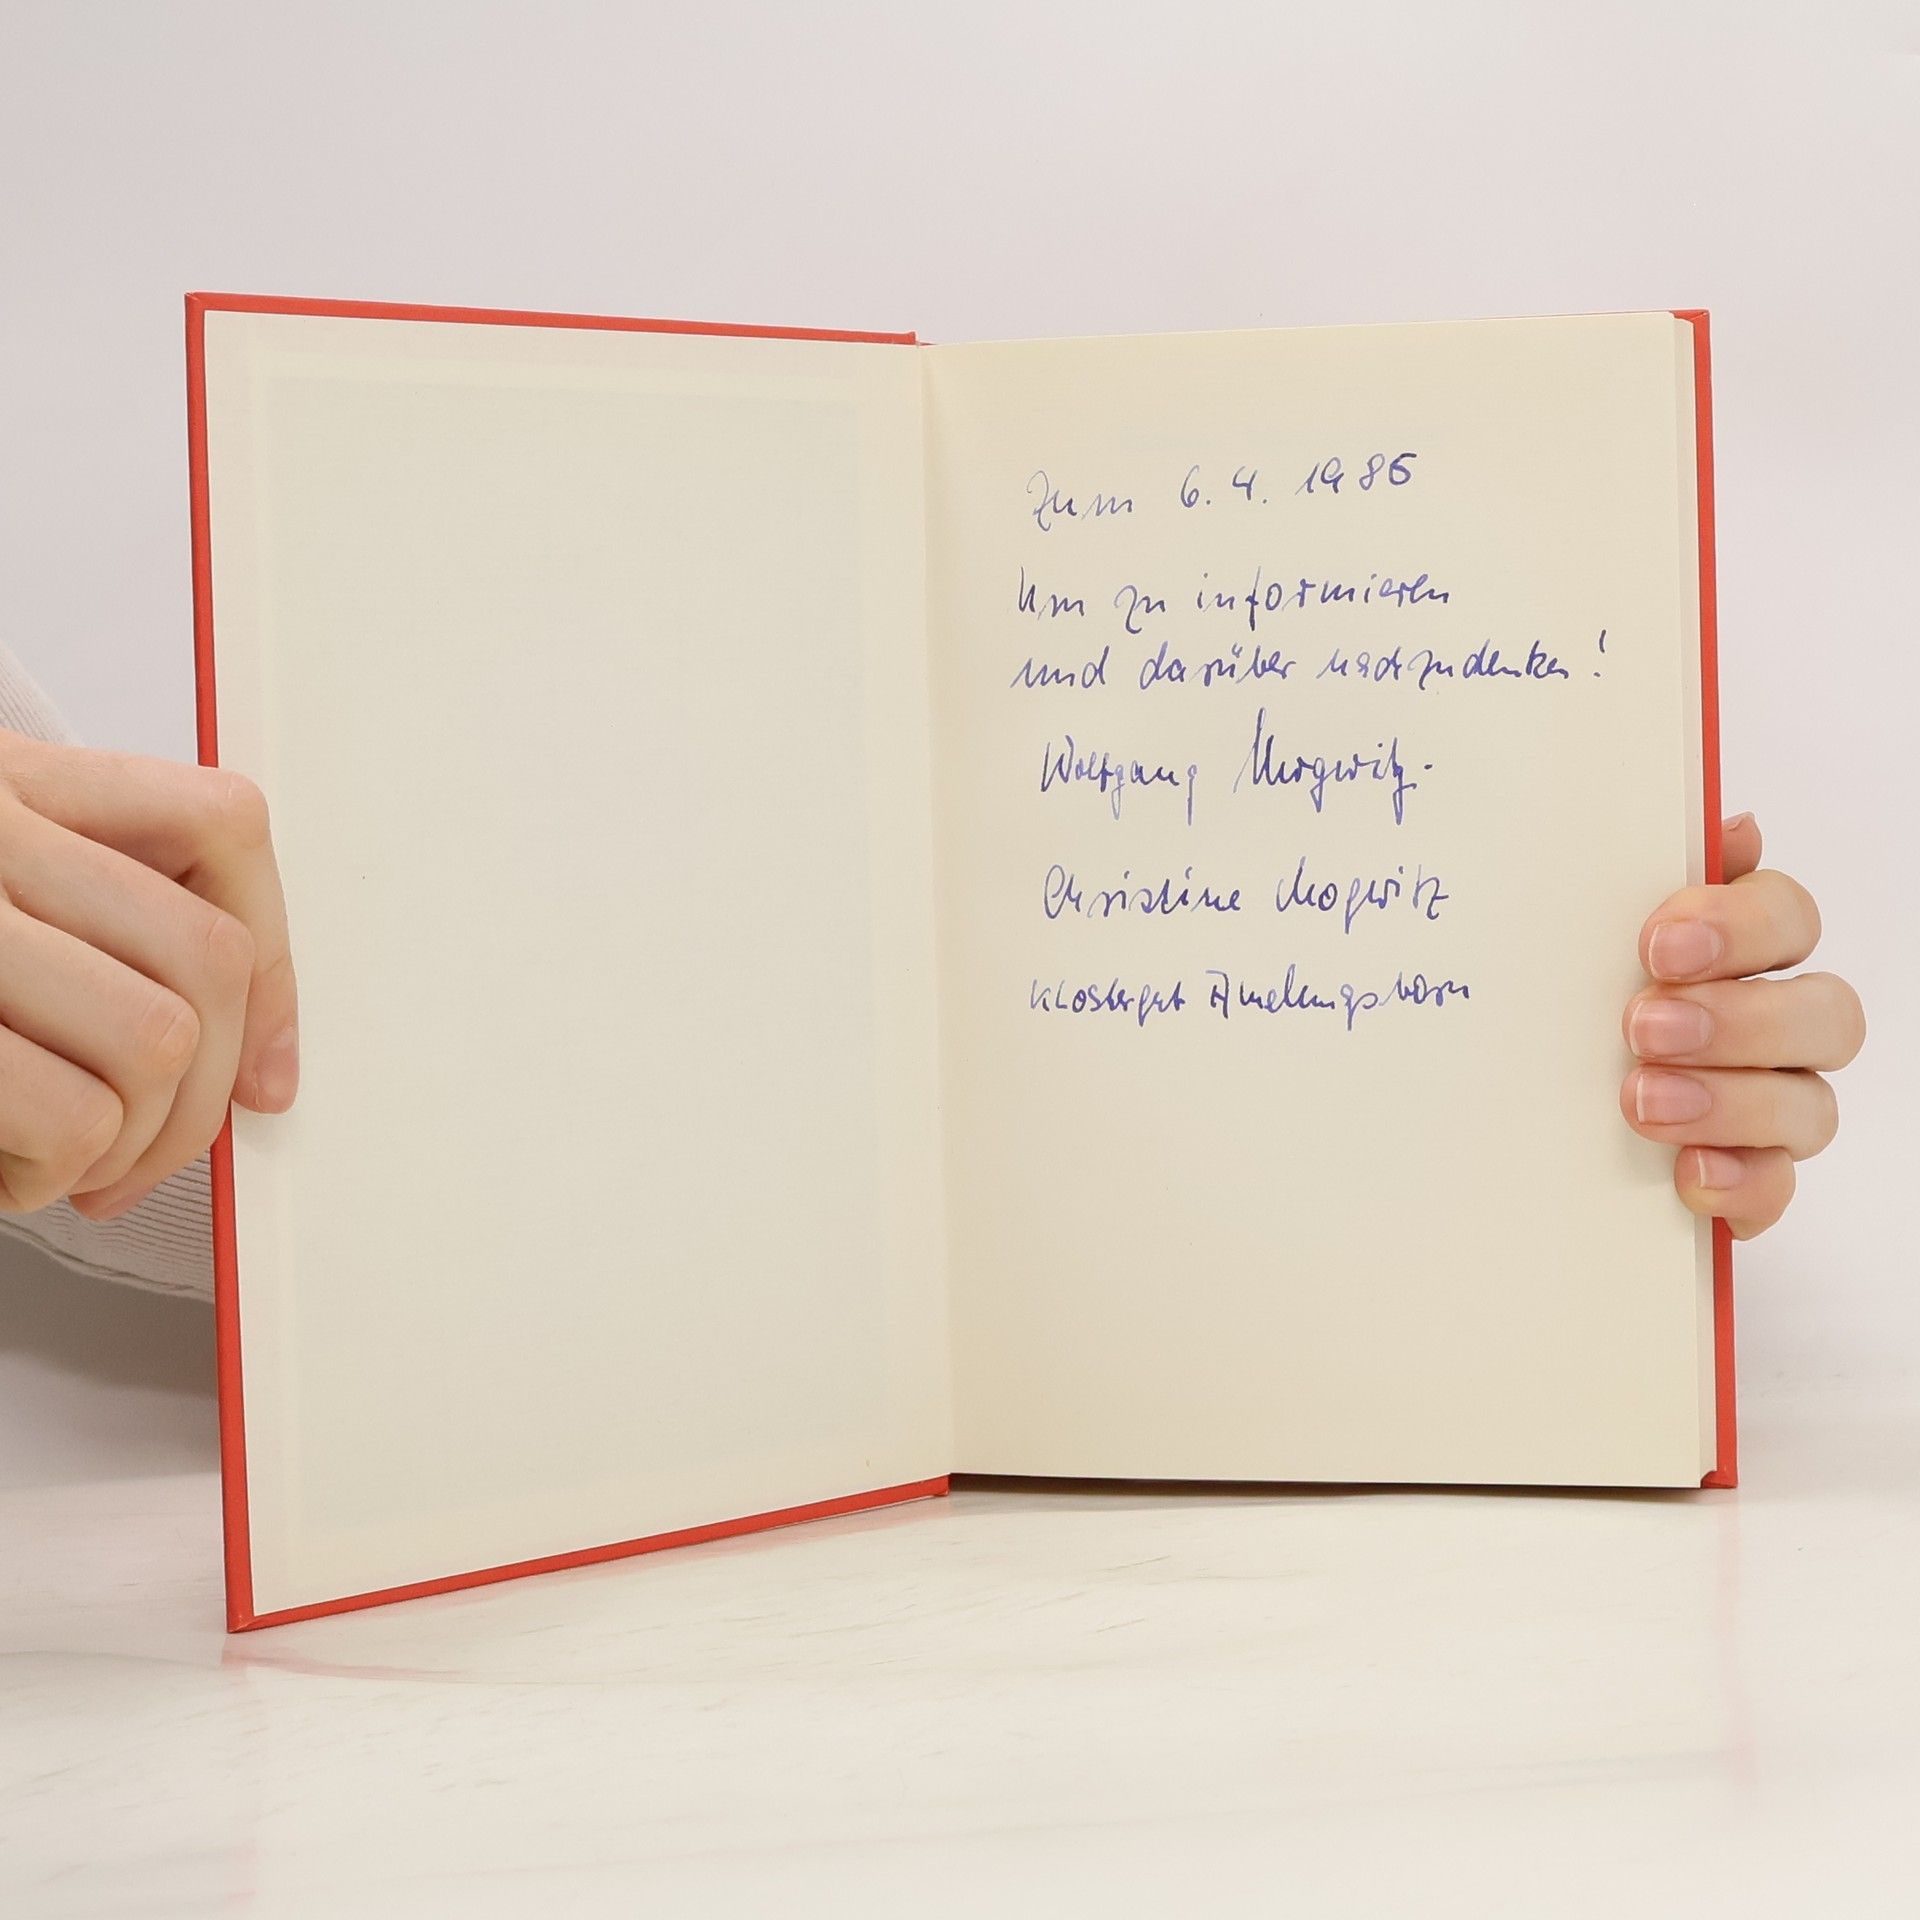 Zum 6. 4. 1986
Um zu informieren
und darüber nachzudenken!
Wolfgang Mogwitz.
Christine Mogwitz
Klostergut Amelungsborn